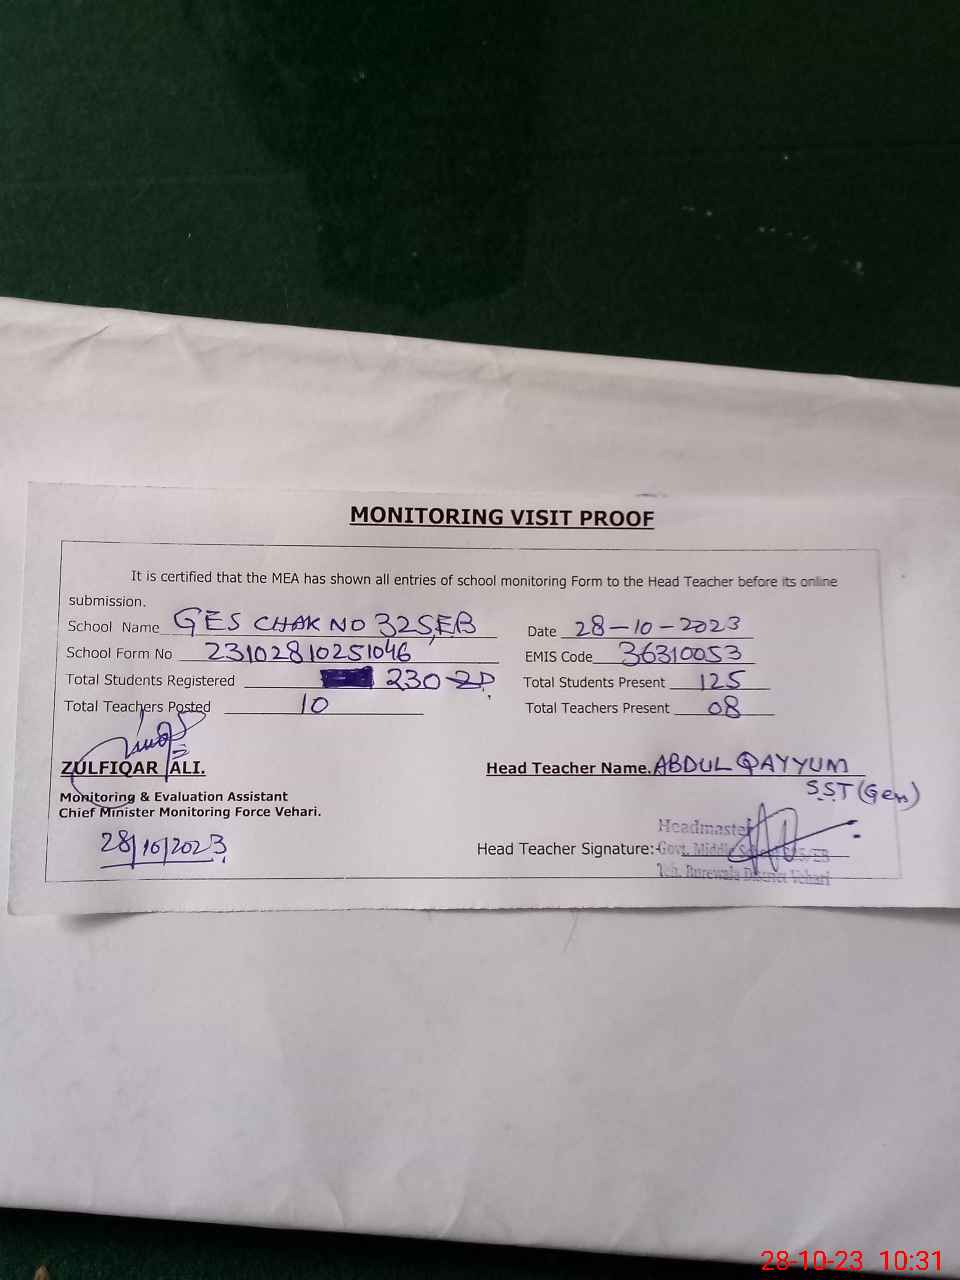 MONITORING VISIT PROOF
It is certified that the MEA has shown all entries of school monitoring Form to the Head Teacher before its online
submission.
School Name GES CHAK NO 325,EB Date 28-10-2023
School Form No 23102810251046 EMIS Code 36310053
Total Students Registered 230 Total Students Present 125
Total Teachers Posted 10 Total Teachers Present 08
ZULFIQAR ALI. Head Teacher Name. ABDUL QAYYUM
S.S.T (Gen)
Monitoring & Evaluation Assistant
Chief Minister Monitoring Force Vehari.
28/10/2023
Headmaster
Head Teacher Signature:- Govt. Middle
Teh. Burewala District Vehari
28-10-23 10:31